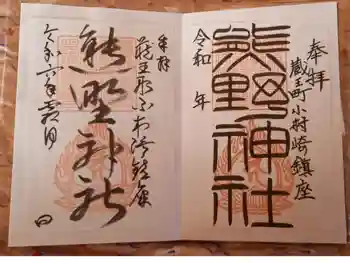 奉拝
蔵王町小村崎鎮座
熊野神社
令和 年
奉拝
蔵王町小村崎鎮座
熊野神社
令和六年
日